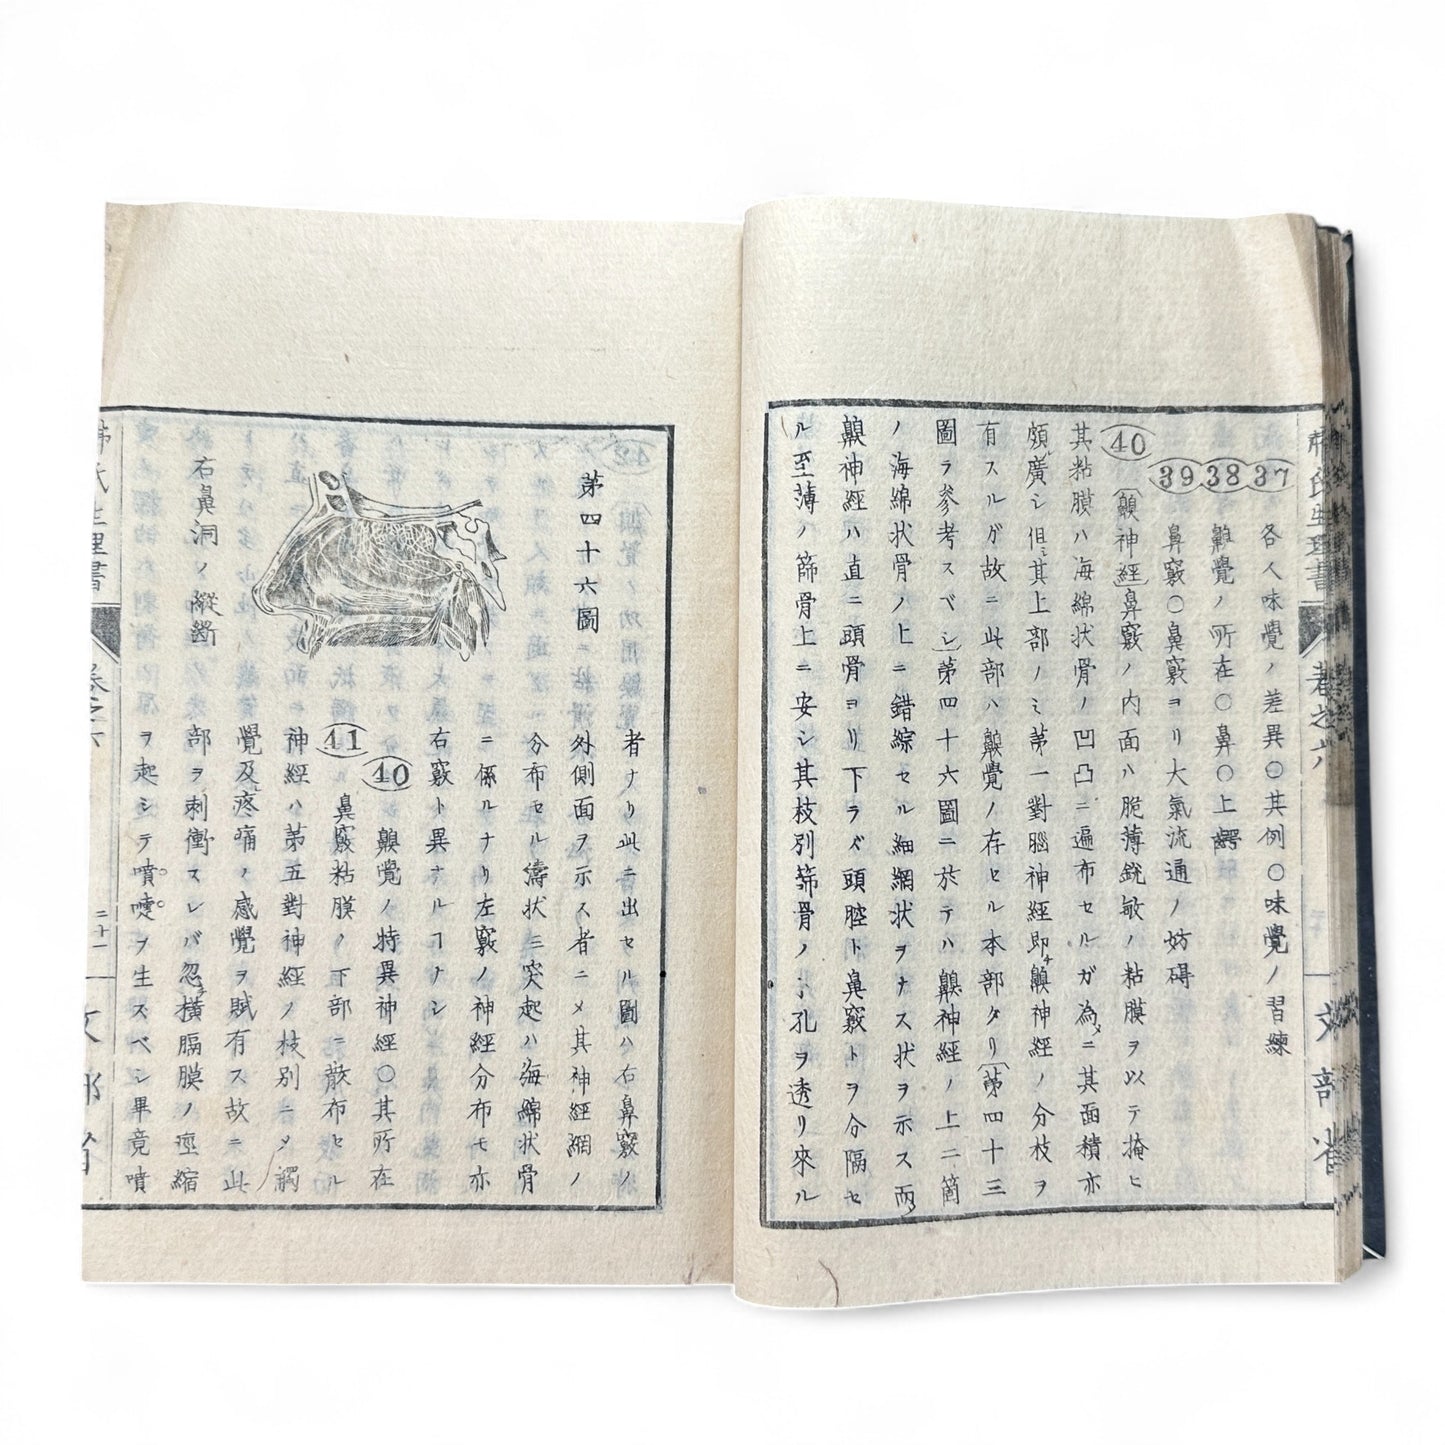 各人味覺ノ差異〇其例〇味覺ノ習練
37
齅覺ノ所在〇鼻〇上齶
38
鼻竅〇鼻竅ヨリ大氣流通ノ妨碍
39
40
（齅神經）鼻竅ノ内面ハ脆薄銳敏ノ粘膜ヲ以テ掩ヒ
其粘膜ハ海綿状骨ノ凹凸ニ遍布セルガ為メニ其面積亦
頗ル廣シ但シ其上部ノミ苐一對腦神經即チ齅神經ノ分枝ヲ
有スルガ故ニ此部ハ齅覺ノ存セル本部タリ（苐四十三
圖ヲ參考スベシ）苐四十六圖ニ於テハ齅神經ノ上二箇
ノ海綿状骨ノ上ニ錯綜セル細網状ヲナス状ヲ示ス而シ
齅神經ハ直ニ頭骨ヨリ下ラズ頭腔ト鼻竅トヲ分隔セ
ル至薄ノ篩骨上ニ安シ其枝別篩骨ノ小孔ヲ透リ來ル
者ナリ此ニ出セル圖ハ右鼻竅ノ
外側面ヲ示ス者ニメ其神經網ノ
分布セル濤状三突起ハ海綿状骨
ニ係ルナリ左竅ノ神經分布モ亦
右竅ト異ナルヿナシ
第四十六圖
右鼻洞ノ縱斷
40
齅覺ノ特異神經〇其所在
41
鼻竅粘膜ノ下部ニ散布セル
神經ハ苐五對神經ノ枝別ニメ觸
覺及疼痛ノ感覺ヲ賦有ス故ニ此
部ヲ刺衝スレバ忽チ橫膈膜ノ痙縮
ヲ起シテ噴嚏ヲ生スベシ畢竟噴
氏生理書
卷之六
二十一
文部省
氏生理書
卷之六
文部省